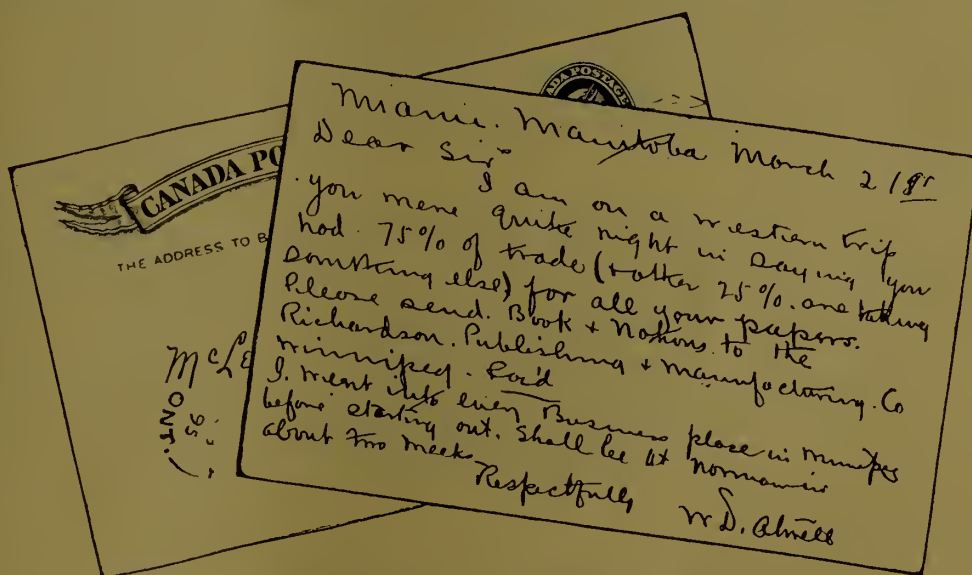 CANADA PO
THE ADDRESS TO B
McLe
ONT.
95
ADA POSTAGE
Miami. Manitoba March 21st
Dear Sir
I am on a western trip
you were quite right in saying you
had 75% of trade (+ other 25% are taking
something else) for all your papers.
Please send. Book + Notions. to the
Richardson. Publishing + Manufacturing. Co
Winnipeg.
I. went into every Business place in Winnipeg
before starting out. Shall be at
about two weeks
Respectfully
W D.